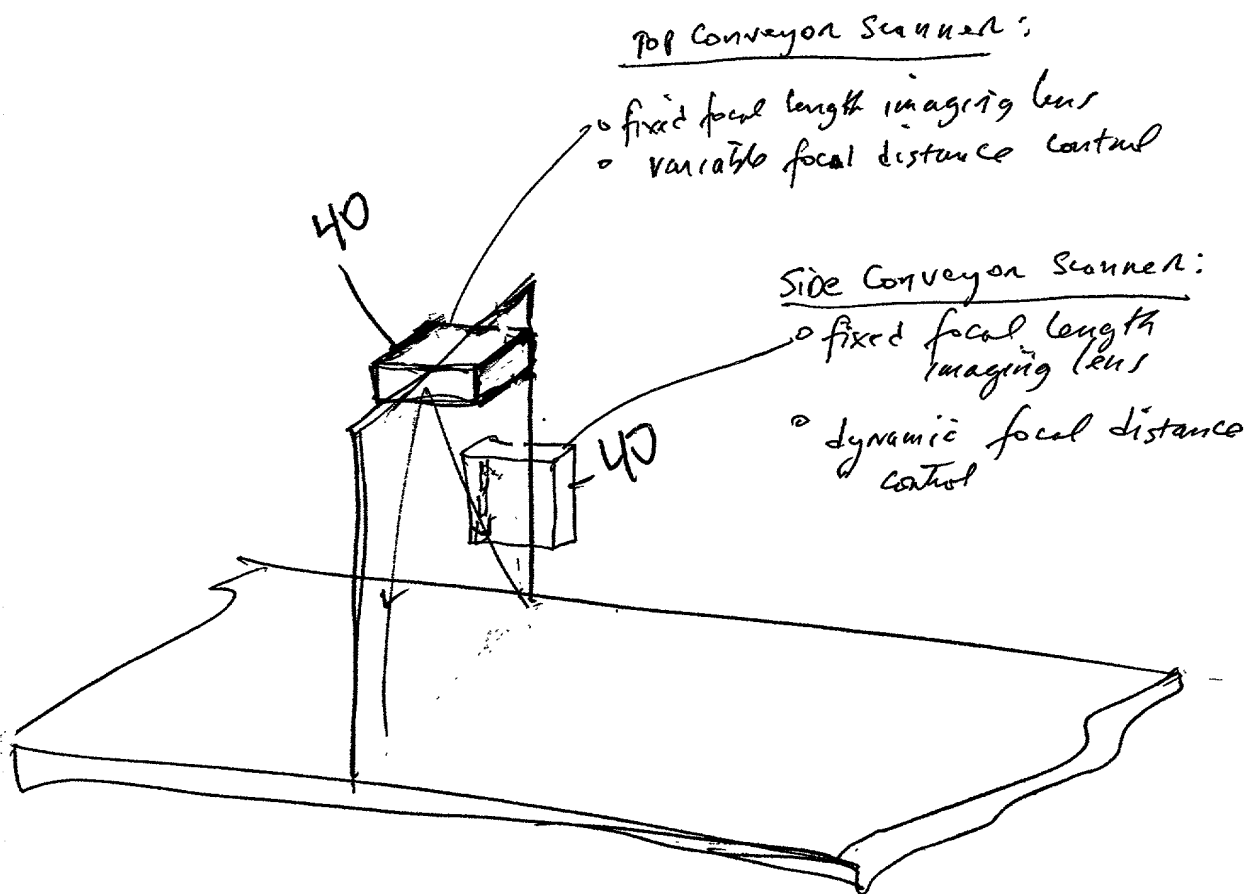 Top Conveyor Scanner:
° fixed focal length imaging lens
° variable focal distance control
40
Side Conveyor Scanner:
° fixed focal length
imaging lens
40
° dynamic focal distance
control